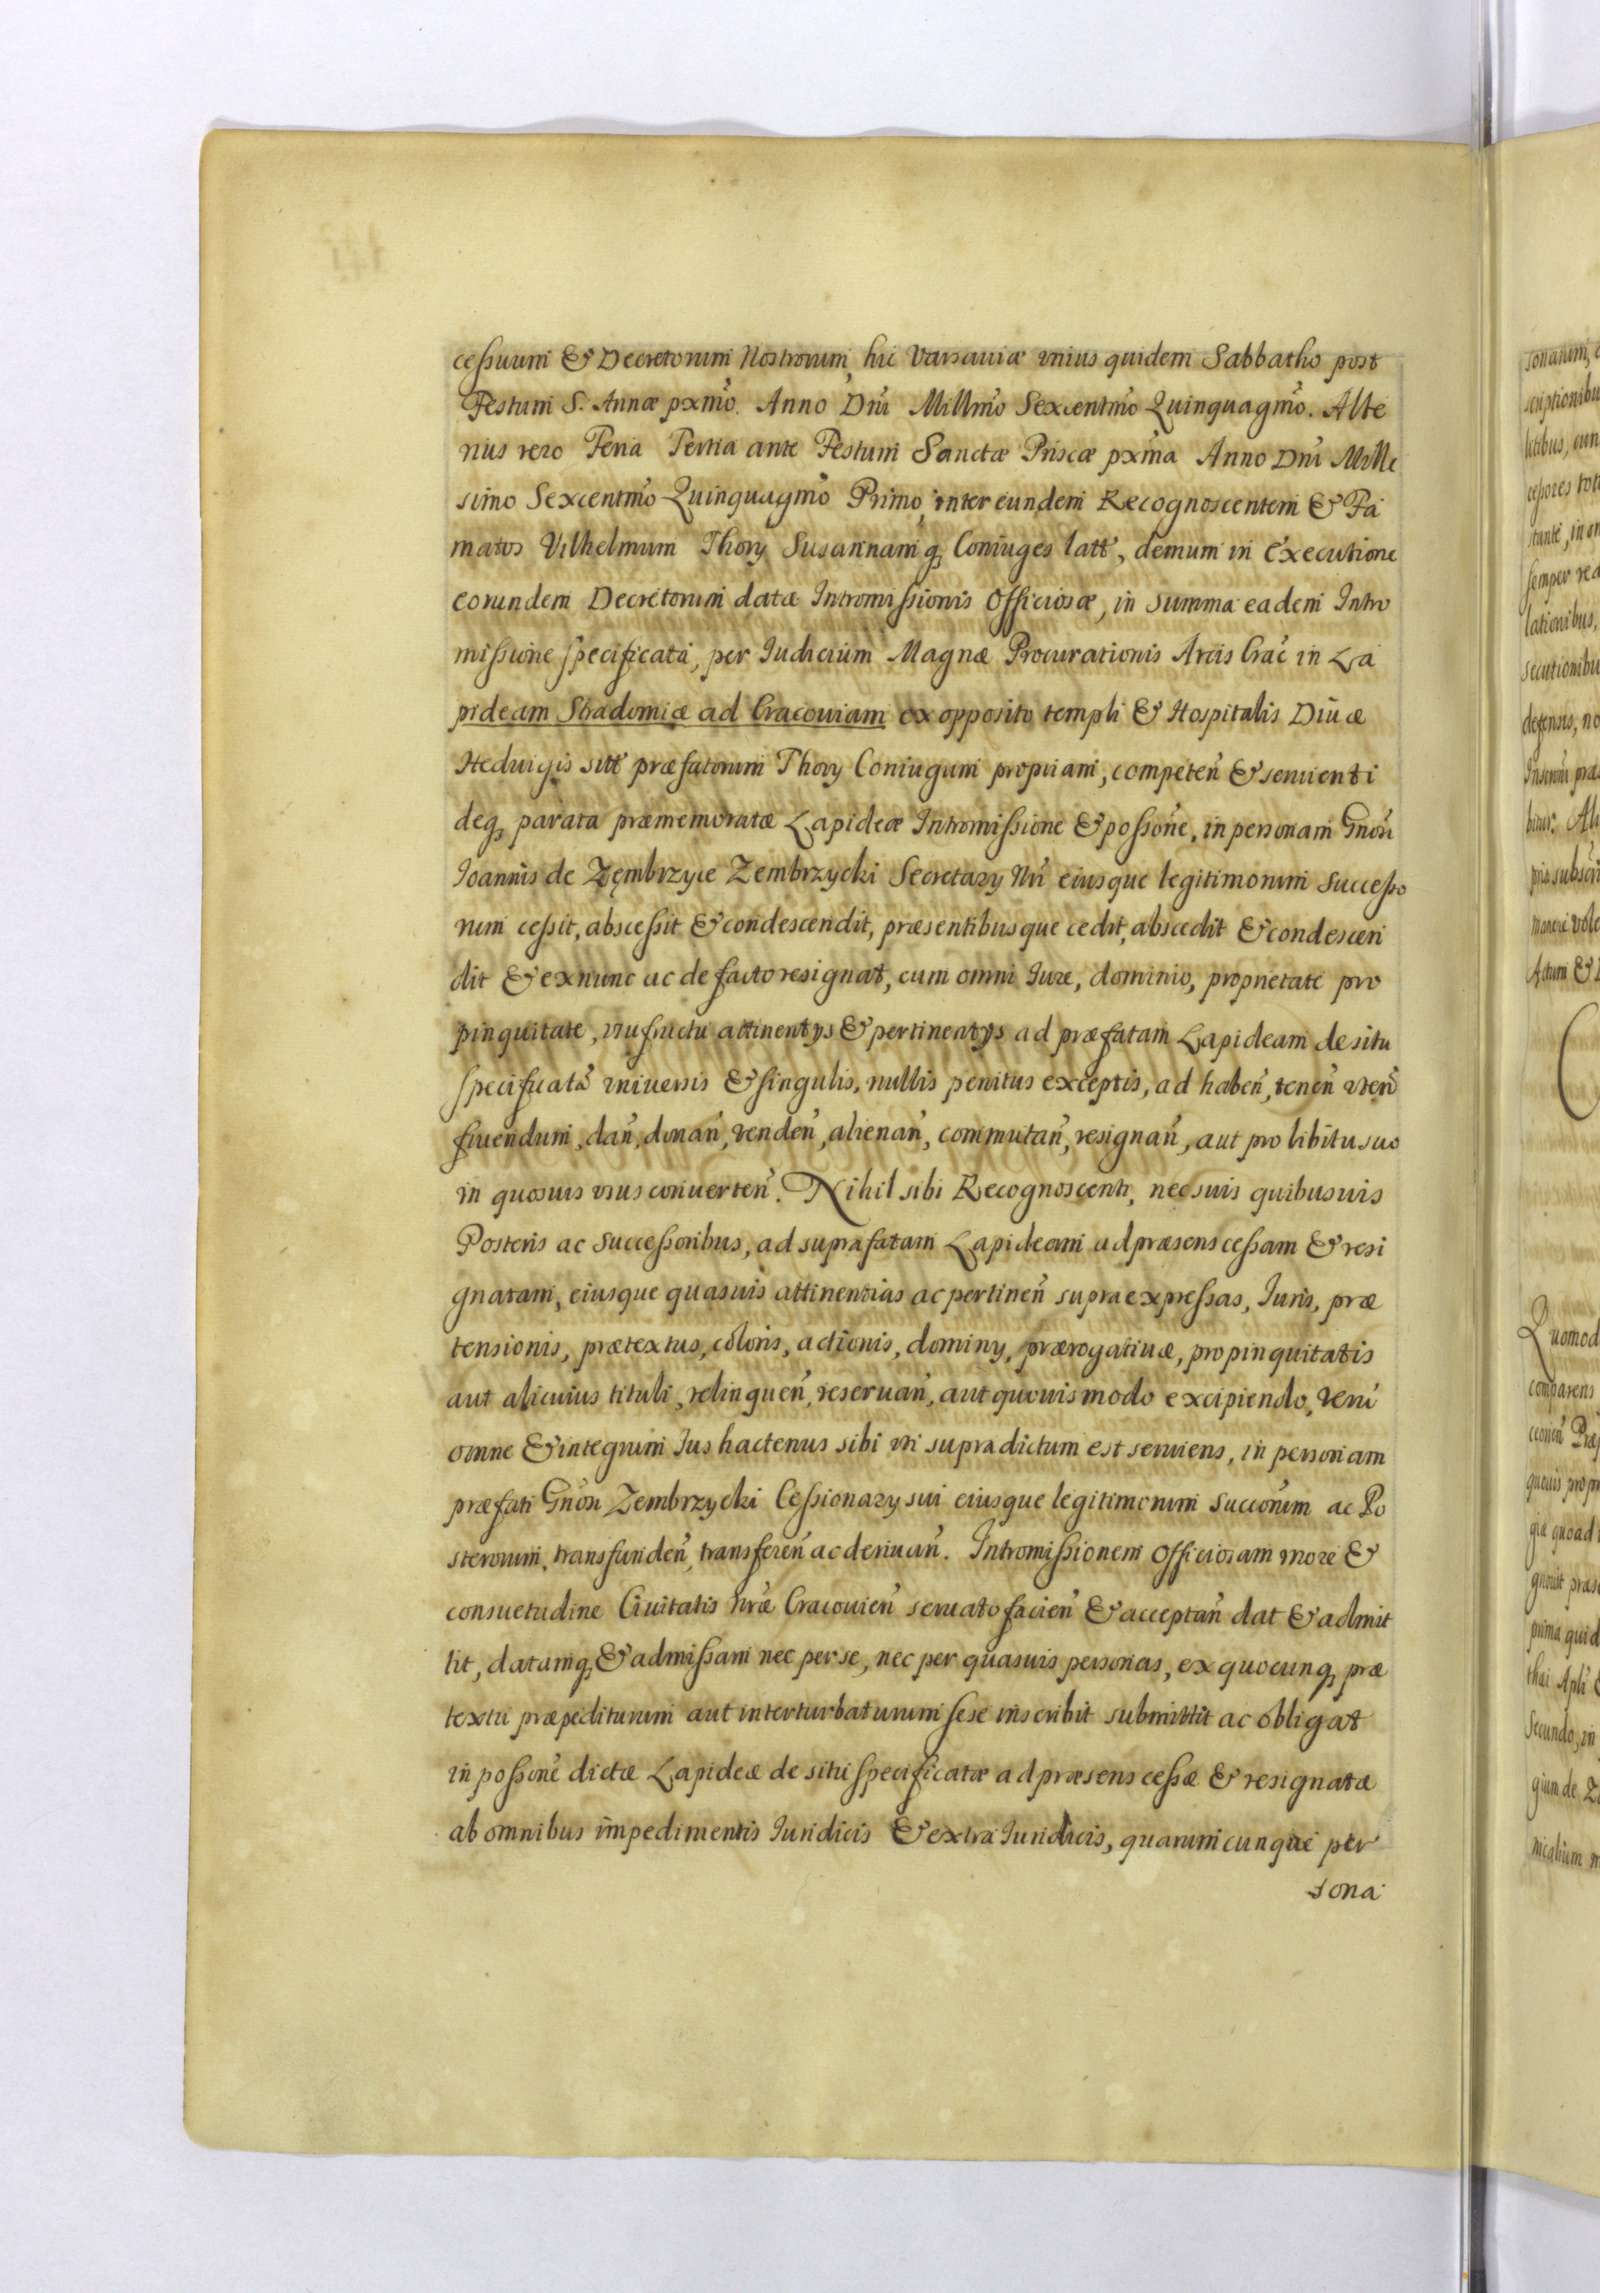 cessuum & Decretorum Nostrorum, hic Varsauiæ vnius quidem Sabbatho post
Festum S. Annæ pxm̃o. Anno Dñi Millm̃o Sexcentm̃o Quinquagm̃o. Alte
rius vero Feria Tertia ante Festum Sanctæ Priscæ pxm̃a Anno Dñi Mille
simo Sexcentm̃o Quinquagm̃o Primo, inter eundem Recognoscentem & Fa
matos Vilhelmum Thory Susannamq, Coniuges latt, demum in Executione
eorundem Decretorum datæ Intromissionis Officiosæ, in summa eadem Intro
missione specificata, per Iudicium Magnæ Procurationis Arcis Crac̃ in La
pideam Stradomiæ ad Cracouiam ex opposito templi & Hospitalis Diuæ
Heduigis sitt præfatorum Thory Coniugum propriam, competeñ & seruienti
deq, parata præmemoratæ Lapideæ Intromissione & possoñe, in personam Gnõsi
Ioannis de Zembrzyce Zembrzycki Secretary Nri eiusque legitimorum Successo
rum cessit, abscessit & condescendit, præsentibusque cedit, abscedit & condescen
dit & exnunc ac de facto resignat, cum omni Iure, dominio, proprietate pro
pinquitate, vsufructu attinentys & pertinentys ad præfatam Lapideam de situ
specificatã vniuersis & singulis, nullis penitus exceptis, ad habeñ, teneñ vteñ
fruendum, dañ, donañ, vendeñ, alienañ, commutañ, resignañ, aut pro libitu suo
in quosuis vsus conuerteñ. Nihil sibi Recognoscenti, nec suis quibusuis
Posteris ac Successoribus, ad suprafatam Lapideam ad præsens cessam & resi
gnatam, eiusque quasuis attinentias ac pertineñ supra expressas, Iuris, præ
tensionis, prætextus, coloris, actionis, dominy, prærogatiuæ, propinquitatis
aut alicuius tituli, relinqueñ, reseruañ, aut quouis modo excipiendo, Verũ
omne & integrum Ius hactenus sibi vti supradictum est seruiens, in personam
præfati Gnõsi Zembrzycki Cessionary sui eiusque legitimorum Succõrum ac Po
sterorum, transfundeñ, transfereñ ac deriuañ. Intromissionem Officiosam more &
consuetudine Ciuitatis nrã Cracouieñ seruato facieñ & acceptañ dat & admit
tit, datamq, & admissam nec per se, nec per quasuis personas, ex quocunq, præ
textu præpediturum aut interturbaturum sese inscribit submittit ac obligat
in possoñe dictæ Lapideæ de situ specificatæ ad præsens cessæ & resignatæ
ab omnibus impedimentis Iuridicis & extra Iuridicis, quarumcunque per
sona